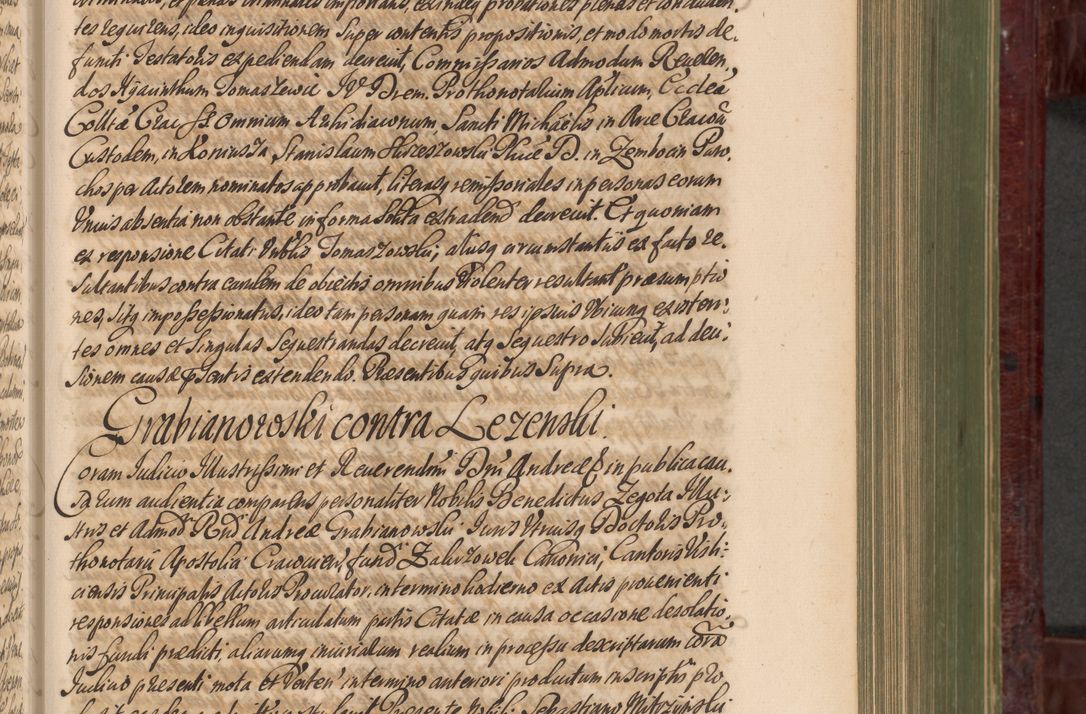 criminales, et penas criminales imponans, ex indeq probationes plenas et concluden
tes requirens, ideo inquisitionem super contentis propositionis, et modo mortis de,
functi Testatoris expediendam decreuit, Commissarios Admodum Reueren,
dos Hyacinthum Tomaszewic IV Drem. Prothonotarium Aplicum, Eccleae
Colltae Crac SS Omnium Archidiaconum, Sancti Michaelis in Arce Cracou
Custodem, in Koniusza, Stanislaum Hurszowski Phiae D. in Zembocin Paro,
chos per Actorem nominatos approbauit, literasq remissoriales in personas eorum
Vnius absentia non obstante in forma solita extradend decreuit. Et quoniam
ex responsione Citati Nobilis Tomaszowski, aliisq circumstantiis ex facto re,
sultantibus contra eundem de obiectis omnibus violenter resultant praesumptio
nes, sitq impossessionatus, ideo tam personam quam res ipsius vbicunq existen,
tes omnes et singulas sequestrandas decreuit, atq sequestro subiecit, ad deci,
sionem causae psentis extendendo. Praesentibus quibus supra.
Grabianowski contra Lezenski.
Coram Iudicio Illustrissimi et Reuerendmi Dni Andreae E in publica cau,
sarum audientia comparens personaliter Nobilis Benedictus Zegota Illu,
stris et Admod Rnd Andreae Grabianowski Iuris Vtriusq Doctoris Pro,
thonotarii Apostolici Cracouien, fund Zalezowek Canonici, Cantoris Visli
ciensis Principalis Actoris Procurator, in termino hodierno ex actis prouenienti
responsiones ad libellum articulatum partis Citatae in causa occasione desolatio,
nis fundi praedicti, aliarumq iniuriarum realium in processu descriptarum cora
Iudicio presenti mota et Verten in termino anteriori productum in scriptis pro
Presente Nobili Sebastiano Mitrzynski